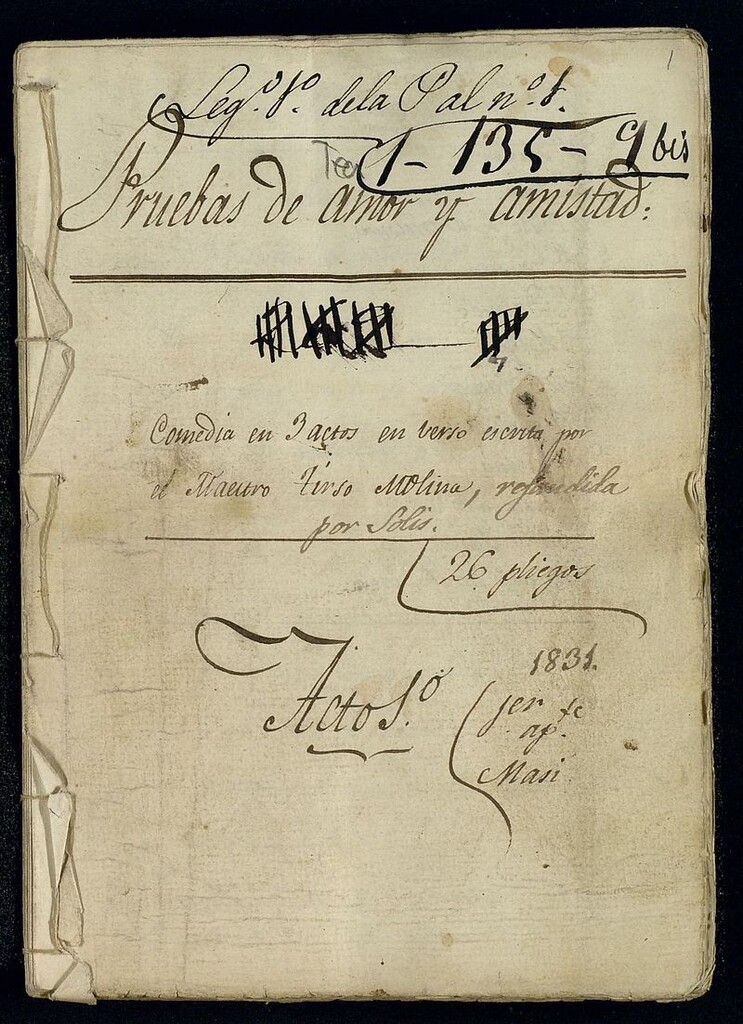 1
Leg.º 1.º dela P al n.º 1.
Tea 1-135-9 bis
Pruebas de amor y amistad:
Comedia en 3 actos en verso escrita por
el Maestro Tirso Molina, refundida
por Solis.
26 pliegos
1831.
Acto 1.º
Masi